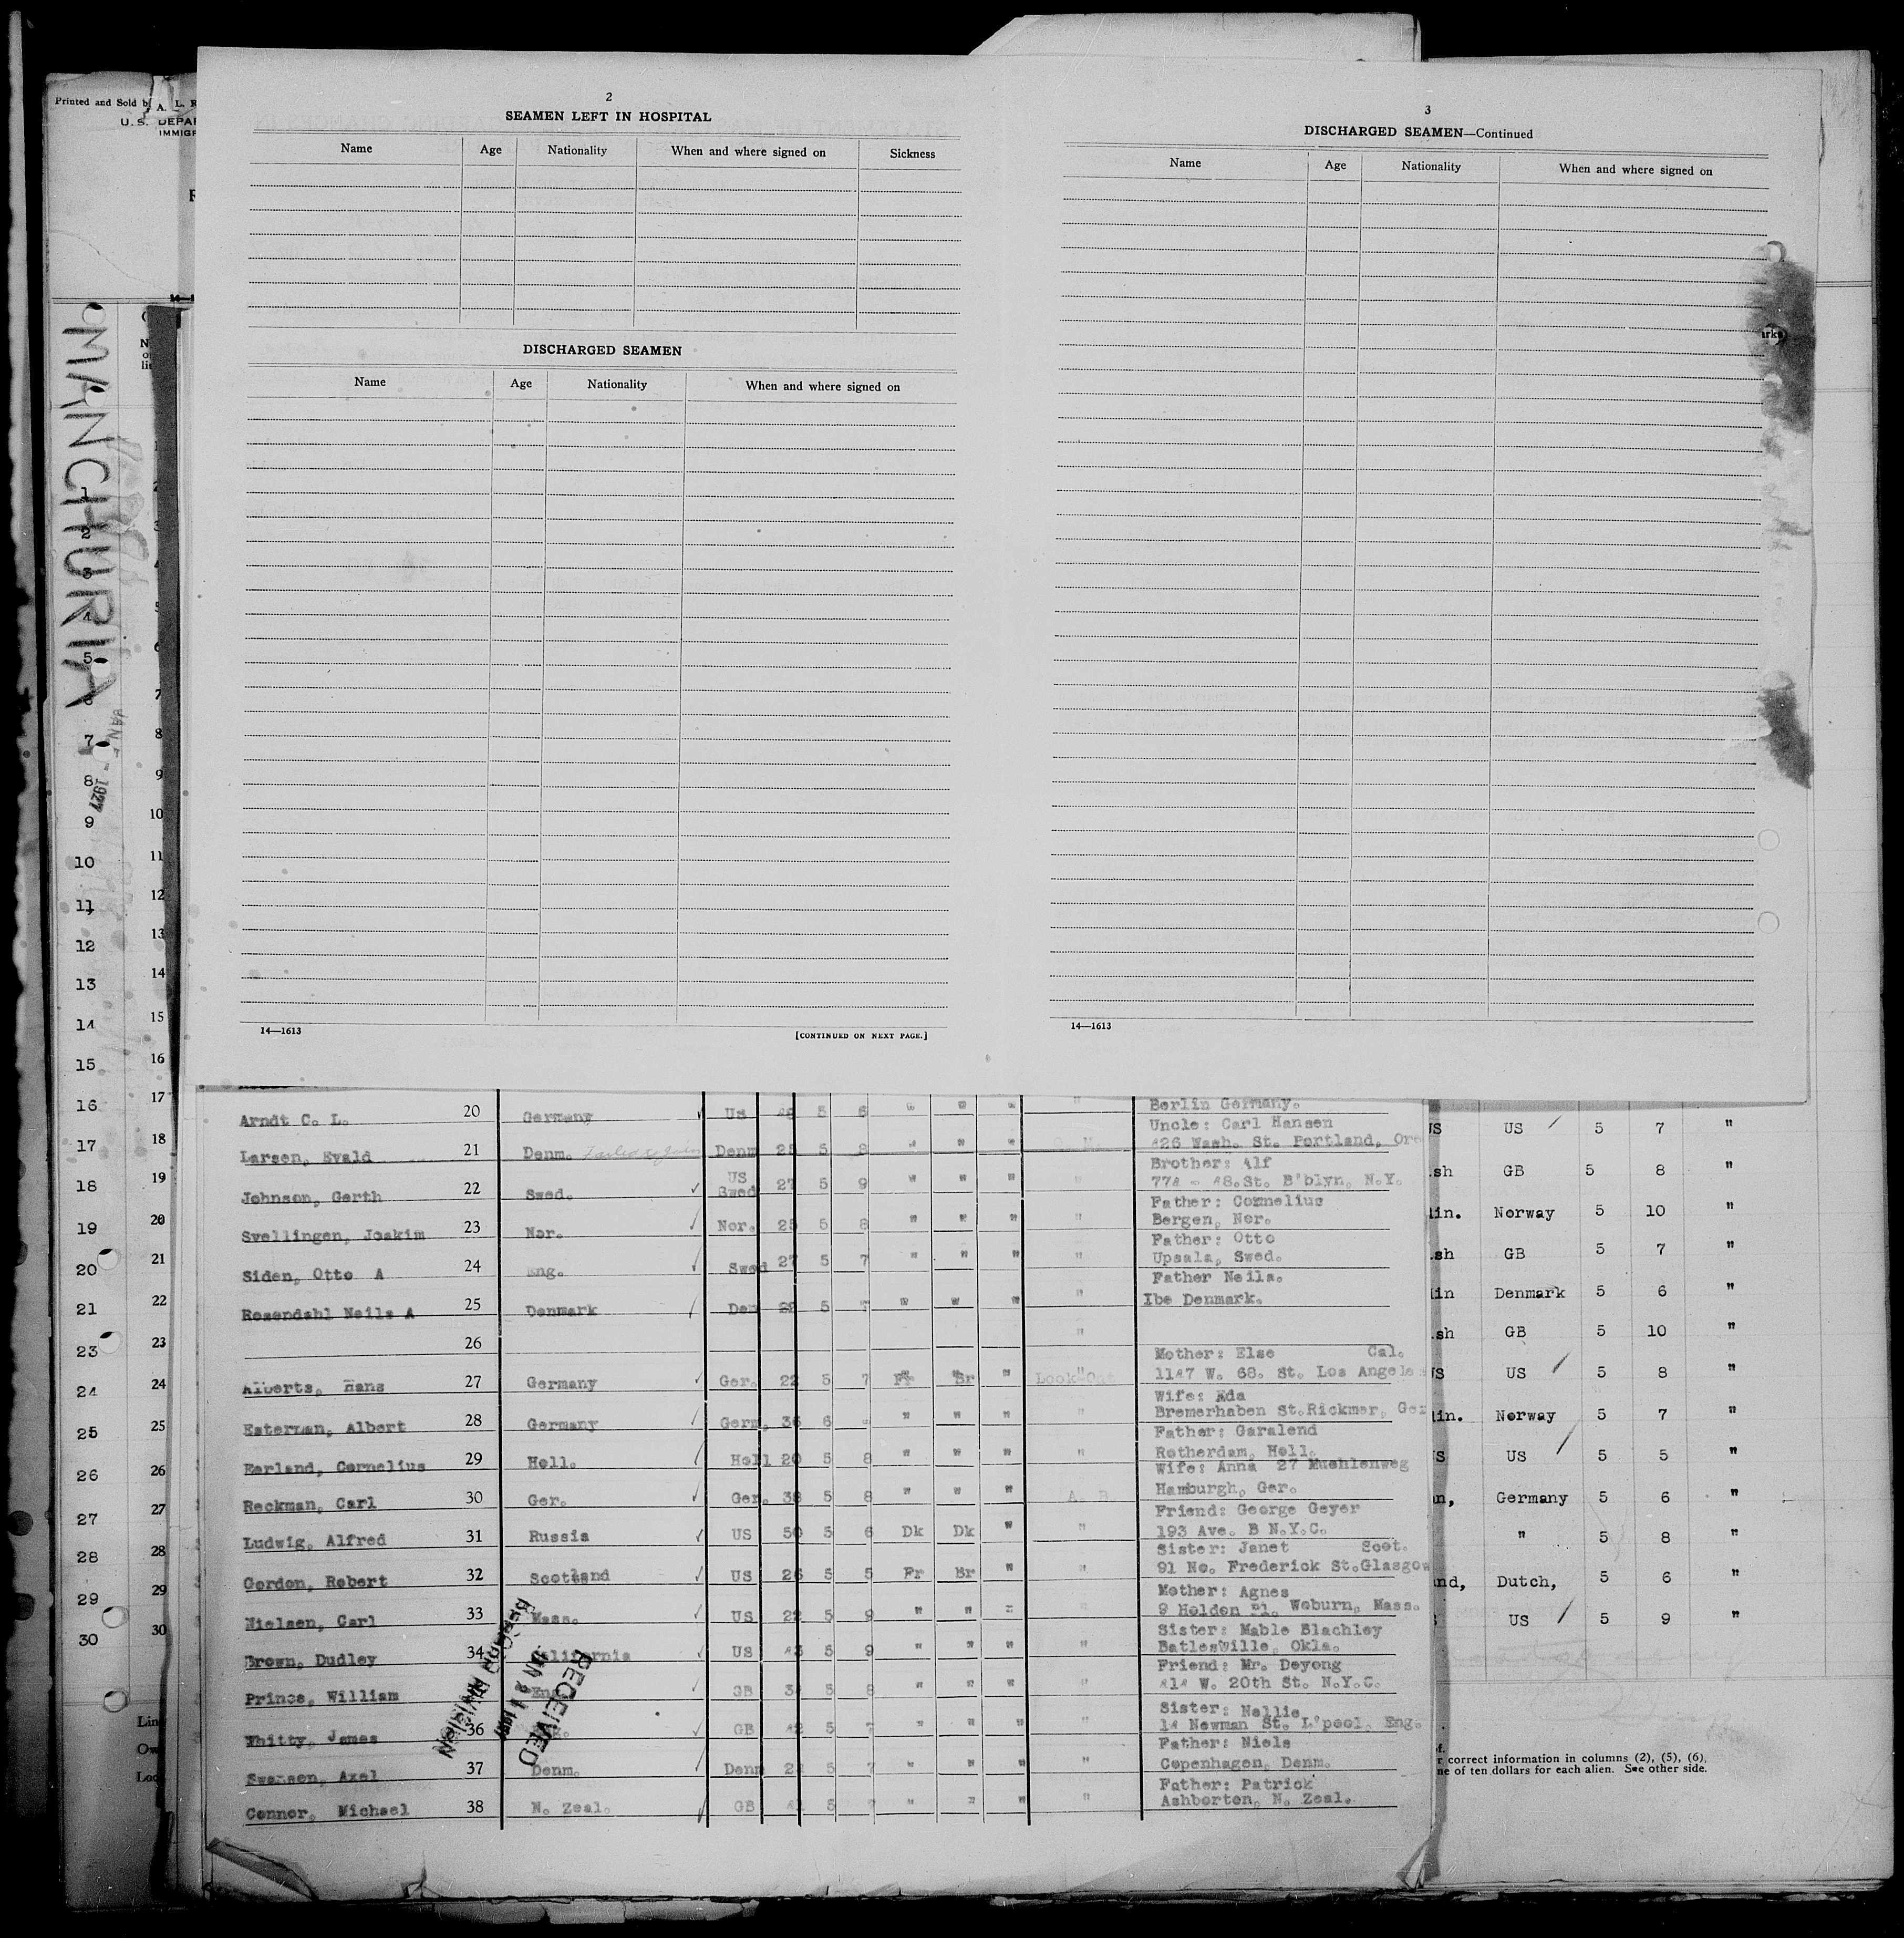 Printed and Sold by A. L. R
U.S. DEPAR
IMMIGR
MANCHURIA
JAN - 1927
2
SEAMEN LEFT IN HOSPITAL
Name Age Nationality When and where signed on Sickness
DISCHARGED SEAMEN
Name Age Nationality When and where signed on
14—1613 [CONTINUED ON NEXT PAGE.]
3
DISCHARGED SEAMEN—Continued
Name Age Nationality When and where signed on
14—1613
1
2
3
4
5
6
7
8
9
10
11
12
13
14
15
16
17
18
19
20
21
22
23
24
25
26
27
28
29
30
2
3
4
5
6
7
8
9
10
11
12
13
14
15
16
17
18
19
20
21
22
23
24
25
26
27
28
29
30
Berlin Germany.
Arndt C. L. 20 Germany Us 5 6 " " " "
Uncle: Carl Hansen
Larsen, Evald 21 Denm. Denm 5 8 " " " 426 Wash. St. Portland, Ore
Brother: Alf
Johnson, Gerth 22 Swed. US Swed 27 5 9 " " " " 774 - 48.St. B'blyn, N.Y.
Father: Cornelius
Svellingen, Joakim 23 Nor. Nor. 25 5 8 " " " " Bergen, Nor.
Father: Otto
Siden, Otto A 24 Eng. Swed 27 5 7 " " " " Upsala, Swed.
Father Neils.
Rosendahl Neils A 25 Denmark Den 5 7 " " " " Ibe Denmark.
26 "
Mother: Else Cal.
Alberts, Hans 27 Germany Ger. 22 5 7 Fr Br " Look-Out 1147 W. 68. St. Los Angele
Wife: Eda
Esterman, Albert 28 Germany Germ. 36 6 " " " " Bremerhaben St.Rickmer, Ger
Father: Garalend
Earland, Cornelius 29 Holl. Holl 20 5 8 " " " " Rotherdam, Holl.
Wife: Anna 27 Muehlenweg
Reckman, Carl 30 Ger. Ger. 38 5 8 " " " A. B. Hamburgh, Ger.
Friend: George Geyer
Ludwig, Alfred 31 Russia US 50 5 6 Dk Dk " " 193 Ave. B N.Y.C.
Sister: Janet Scot.
Gordon, Robert 32 Scotland US 26 5 5 Fr Br " " 91 No. Frederick St.Glasgow
Mother: Agnes
Nielsen, Carl 33 Mass. US 22 5 9 " " " " 9 Holden Pl. Woburn, Mass.
Sister: Mable Blachley
Brown, Dudley 34 California US 43 5 9 " " " " Batlesville, Okla.
Friend: Mr. Deyong
Prince, William Eng. GB 5 8 " " " " 414 W. 20th St. N.Y.C.
Sister: Nellie
Whitty, James 36 GB 42 5 7 " " " " 14 Newman St. L'pool, Eng.
Father: Niels
Swansen, Axel 37 Denm. Denm 5 7 " " " " Copenhagen, Denm.
Father: Patrick
Connor, Michael 38 N. Zeal. GB 5 7 " " " " Ashborton, N. Zeal.
RECEIVED
JAN 21 1927
RECORD DIVISION
US US 5 7 "
sh GB 5 8 "
din. Norway 5 10 "
sh GB 5 7 "
din Denmark 5 6 "
sh GB 5 10 "
US US 5 8 "
din. Norway 5 7 "
S US 5 5 "
n, Germany 5 6 "
" 5 8 "
nd, Dutch, 5 6 "
US 5 9 "
r correct information in columns (2), (5), (6),
ne of ten dollars for each alien. See other side.